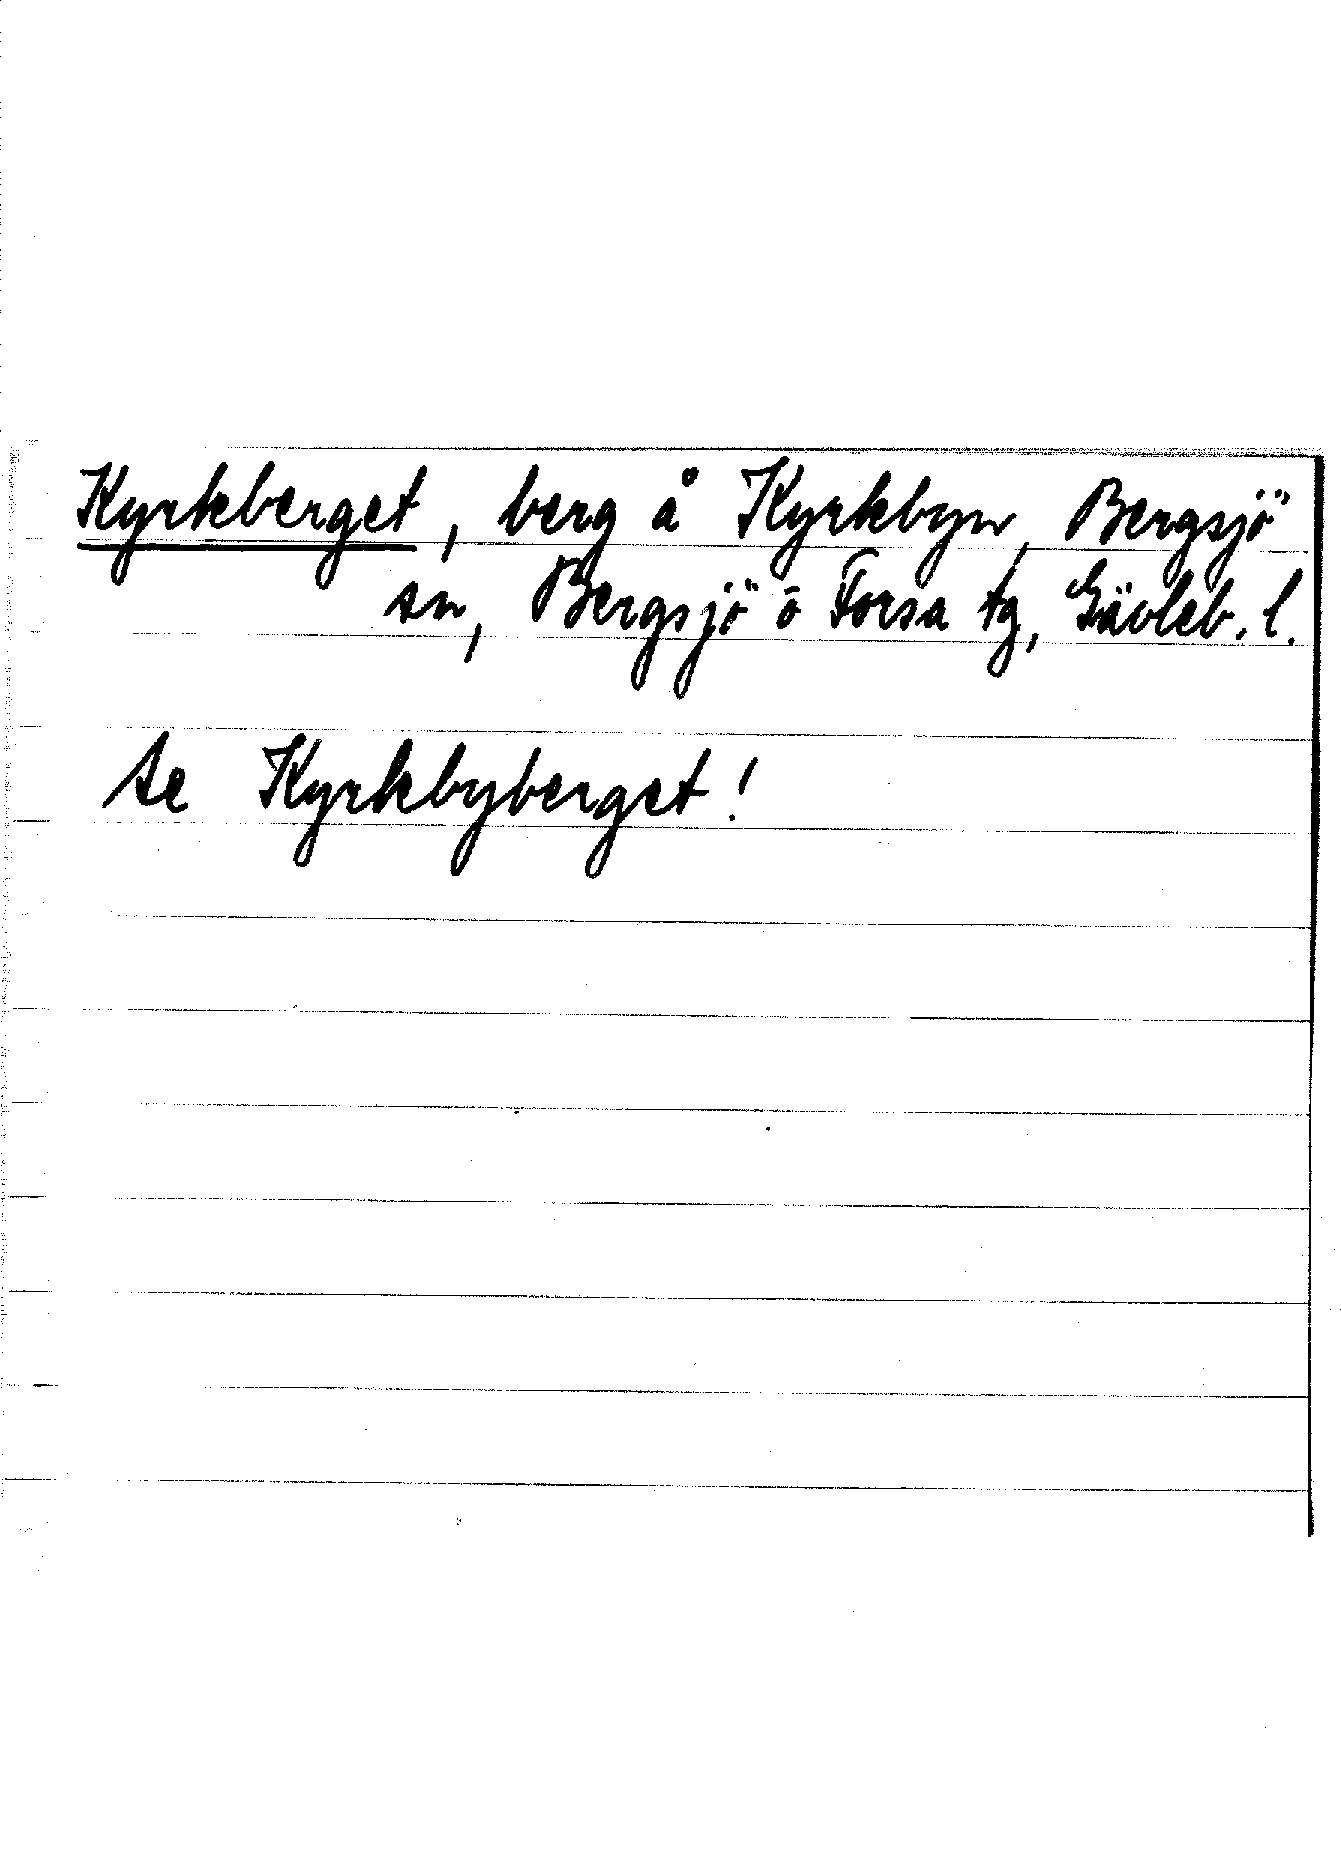 Kyrkberget, berg å Kyrkbyn, Bergsjö
sn, Bergsjö o Forsa tg, Gävleb. l.
se Kyrkbyberget!